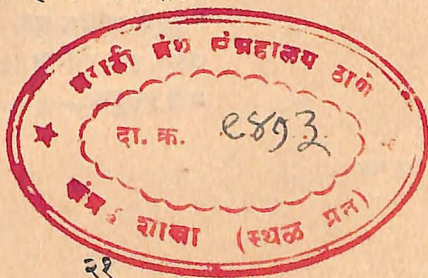 मराठी ग्रंथ संग्रहालय ठाणे
दा. क्र. ९४१३
शाखा (स्थळ प्रत)
२१